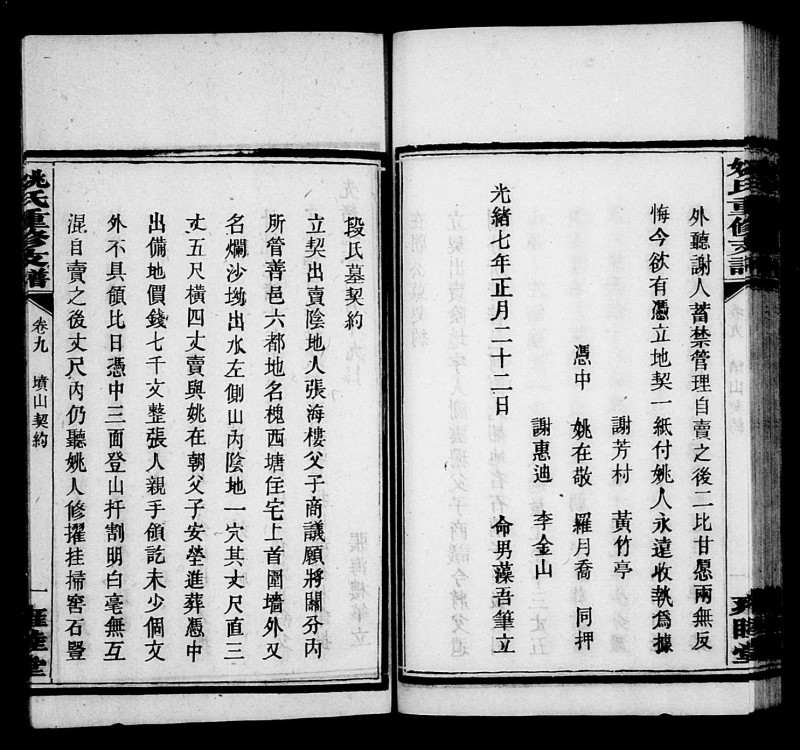 姚氏重修支譜
卷九　墳山契約
外聽謝人蓄禁管理自賣之後二比甘愿兩無反
悔今欲有憑立地契一紙付姚人永遠收執爲據
謝芳村　黃竹亭
憑中　姚在敬　羅月喬　同押
謝惠迪　李金山
光緒七年正月二十二日　命男藻吾筆立
段氏墓契約
立契出賣陰地人張海樓父子商議願將關分內
所管善邑六都地名槐西塘住宅上首圍墻外又
名爛沙坳出水左側山內陰地一穴其丈尺直三
丈五尺橫四丈賣與姚在朝父子安塋進葬憑中
出備地價錢七千文整張人親手領訖未少個文
外不具領比日憑中三面登山扦割明白毫無互
混自賣之後丈尺內仍聽姚人修擢挂掃窖石豎
姚氏重修支譜
卷九　墳山契約
一
雍睦堂